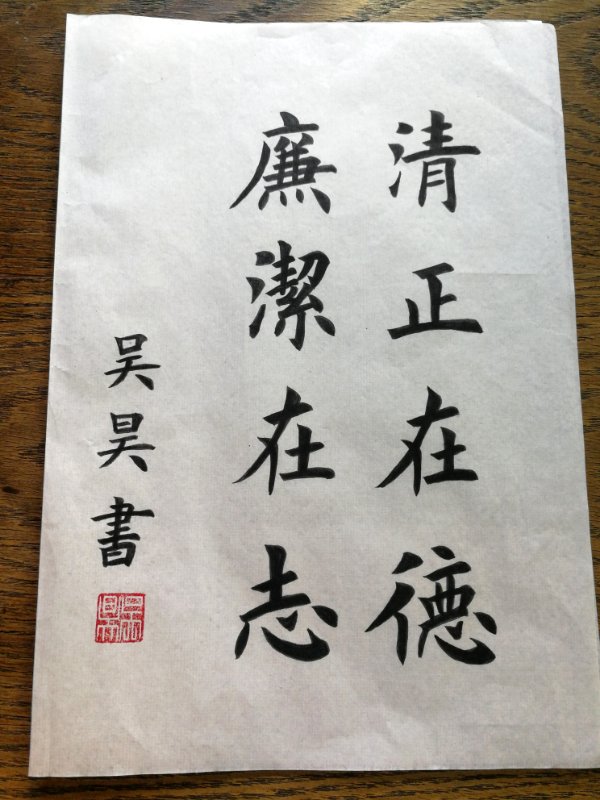 清正在德
廉潔在志
吴昊書